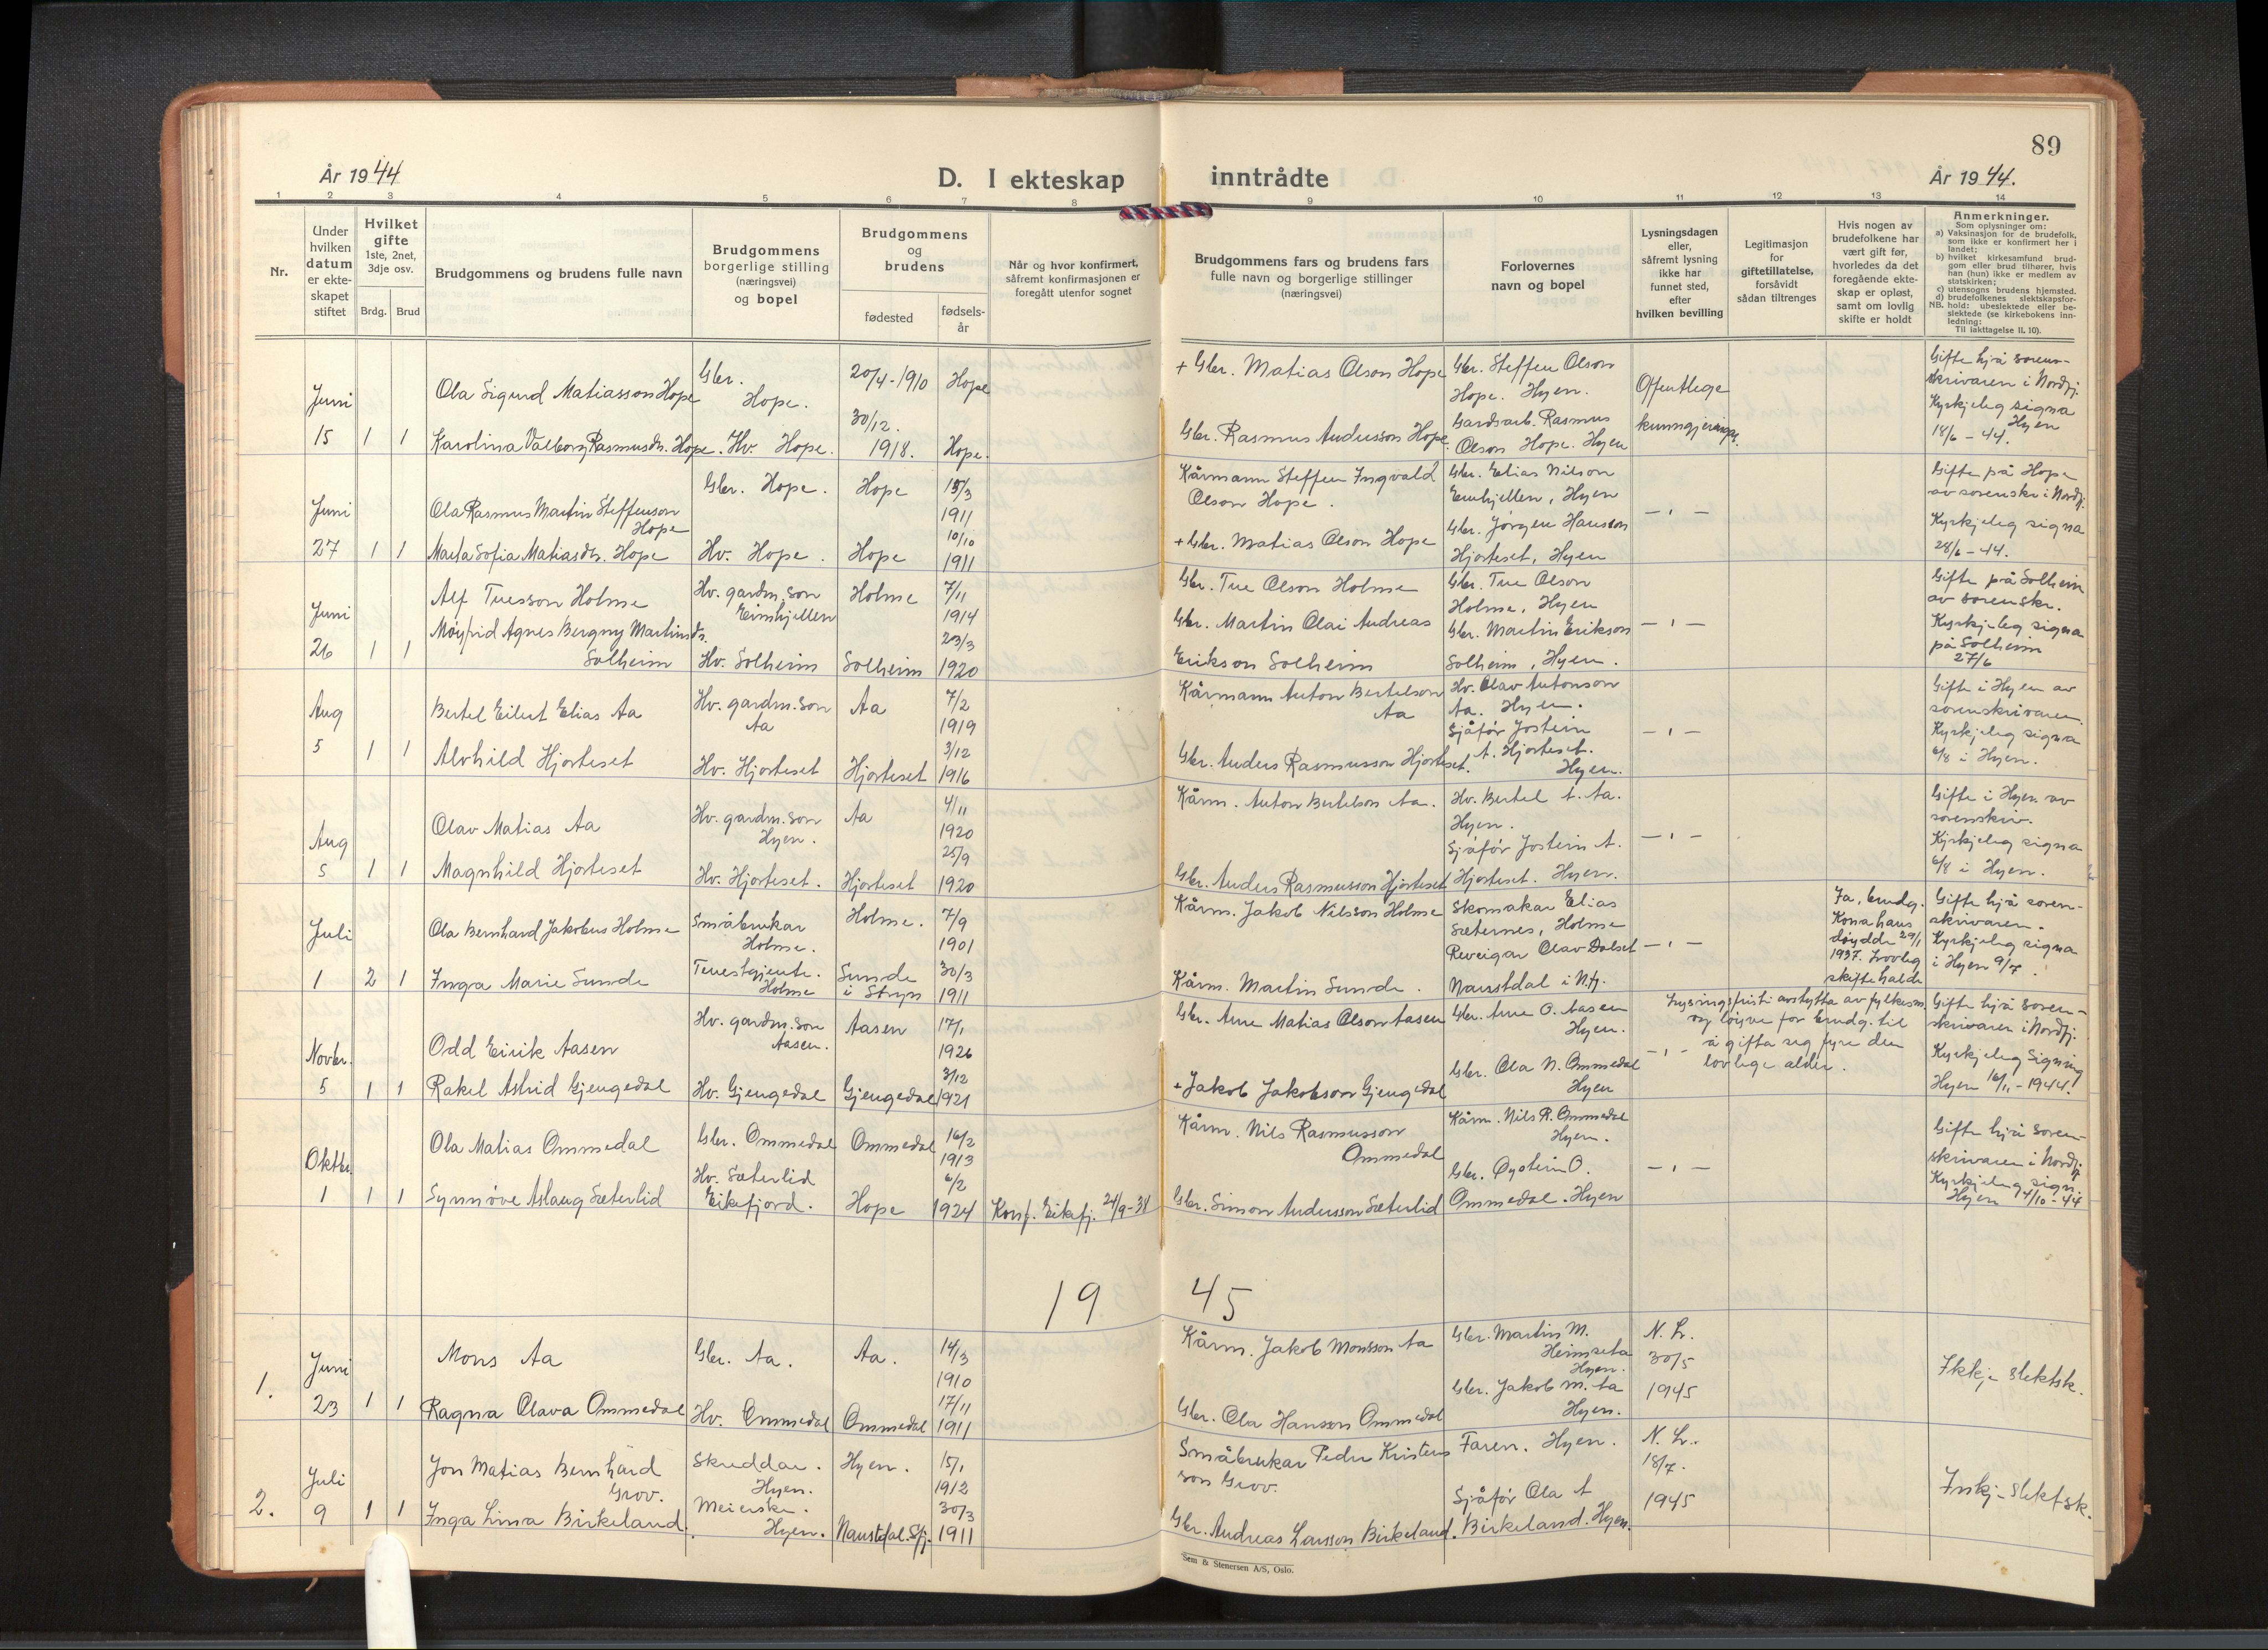 89
År 1944
D. I ekteskap
inntrådte
År 1944.
1 2 3 4 5 6 7 8 9 10 11 12 13 14
Nr.
Under
hvilken
datum
er ekte-
skapet
stiftet
Hvilket
gifte
1ste, 2net,
3dje osv.
Brdg.
Brud
Brudgommens og brudens fulle navn
Brudgommens
borgerlige stilling
(næringsvei)
og bopel
Brudgommens
og
brudens
fødested
fødsels-
år
Når og hvor konfirmert,
såfremt konfirmasjonen er
foregått utenfor sognet
Brudgommens fars og brudens fars
fulle navn og borgerlige stillinger
(næringsvei)
Forlovernes
navn og bopel
Lysningsdagen
eller,
såfremt lysning
ikke har
funnet sted,
efter
hvilken bevilling
Legitimasjon
for
giftetillatelse,
forsåvidt
sådan tiltrenges
Hvis nogen av
brudefolkene har
vært gift før,
hvorledes da det
foregående ekte-
skap er opløst,
samt om lovlig
skifte er holdt
Anmerkninger.
Som oplysninger om:
a) Vaksinasjon for de brudefolk,
som ikke er konfirmert her i
landet;
b) hvilket kirkesamfund brud-
gom eller brud tilhører, hvis
han (hun) ikke er medlem av
statskirken;
c) utensogns brudens hjemsted.
d) brudefolkenes slektskapsfor-
NB. hold: ubeslektede eller be-
slektede (se kirkebokens inn-
ledning:
Til iakttagelse II, 10).
Juni
15
1 1
Ola Sigurd Matiasson Hope
Karolina Valborg Rasmusdr. Hope.
Gbr.
Hope.
Hv. Hope.
20/4-1910 Hope
30/12.
1918. Hope.
+ Gbr. Matias Olson Hope
Gbr. Rasmus Andersson Hope.
Gbr. Steffen Olson
Hope. Hyen.
Gardsarb. Rasmus
Olson Hope. Hyen
Offentlege
kunngjeringar.
Gifte hjå sorens-
skrivaren i Nordfj.
Kyrkjeleg signa
Hyen
18/6 - 44.
Juni
27
1 1
Ola Rasmus Martin Steffenson
Hope
Marta Sofia Matiasdr. Hope
Gbr. Hope.
Hv. Hope.
Hope
15/3
1911
Hope
10/10
1911
Kårmann Steffen Ingvald
Olson Hope.
+ Gbr. Matias Olson Hope
Gbr. Elias Nilson
Eimhjellen, Hyen
Gbr. Jørgen Hansson
Hjorteset, Hyen
— " —
Gifte på Hope
av sorenskr i Nordfj.
Kyrkjeleg signa
28/6 - 44.
Juni
26
1 1
Alf Tuesson Holme
Møyfrid Agnes Bergny Martinsdr.
Solheim
Hv. gardm. son
Eimhjellen
Hv. Solheim
Holme
7/11
1914
Solheim
23/3
1920
Gbr. Tue Olson Holme
Gbr. Martin Olai Andreas
Erikson Solheim
Gbr. Tue Olson
Holme, Hyen
Gbr. Martin Erikson
Solheim, Hyen.
— " —
Gifte på Solheim
av sorenskr.
Kyrkjeleg signa
på Solheim
27/6
Aug
5
1 1
Bertel Eilert Elias Aa
Alvhild Hjorteset
Hv. gardm. son
Aa
Hv. Hjorteset
Aa
7/2
1919
Hjorteset
3/12
1916
Kårmann Anton Bertelson
Aa
Gbr. Anders Rasmusson Hjorteset.
Hv. Olav Antonson
Aa. Hyen.
Sjåfør Jostein
A. Hjorteset.
Hyen.
— " —
Gifte i Hyen av
sorenskrivaren.
Kyrkjeleg signa
6/8 i Hyen.
Aug
5
1 1
Olav Matias Aa
Magnhild Hjorteset
Hv. gardm. son
Hyen.
Hv. Hjorteset.
Aa
4/11
1920
Hjorteset
25/9
1920
Kårm. Anton Bertelson Aa.
Gbr. Anders Rasmusson Hjorteset
Hv. Bertel A. Aa.
Hyen.
Sjåfør Jostein A.
Hjorteset. Hyen.
— " —
Gifte i Hyen av
sorenskriv.
Kyrkjeleg signa
6/8 i Hyen.
Juli
1
2 1
Ola Bernhard Jakobus Holme
Inga Marie Sunde
Småbrukar
Holme.
Tenestgjente.
Holme
Holme.
7/9
1901
Sunde
i Stryn
30/3
1911
Kårm. Jakob Nilsson Holme
Kårm. Martin Sunde.
Skomakar Elias
Sæternes, Holme
Reveigar Olav Dalset
Naustdal i N.fj.
— " —
Ja, brudg.
Kona hans
døydde 29/1
1937. Lovleg
skifte halde
Gifte hjå soren-
skrivaren.
Kyrkjeleg signa
i Hyen 9/7.
Novbr.
5
1 1
Odd Eirik Aasen
Rakel Astrid Gjengedal
Hv. gardm. son
Aasen.
Hv. Gjengedal
Aasen
17/1
1926
Gjengedal
3/12
1921
Gbr. Arne Matias Olson Aasen
+ Jakob Jakobson Gjengedal
Gbr. Arne O. Aasen
Hyen.
Gbr. Ola N. Ommedal
Hyen
Lysingsfristi avstytta av fylkesm.
og løyve for brudg. til
— " — å gifta seg fyre den
lovlege alder.
Gifte hjå soren-
skrivaren i Nordfj.
Kyrkjeleg signing
Hyen 16/11 - 1944!
Oktbr.
1
1 1
Ola Matias Ommedal
Synnøve Aslaug Sæterlid
Gbr. Ommedal
Hv. Sæterlid
Eikefjord.
Ommedal
16/2
1913
Hope
6/2
1924
Konf. Eikefj. 24/9-38
Kårm. Nils Rasmusson
Ommedal
Gbr. Simon Andersson Sæterlid
Kårm. Nils R. Ommedal
Hyen.
Gbr. Øystein O.
Ommedal. Hyen
— " —
Gifte hjå soren-
skrivaren i Nordfj.
Kyrkjeleg sign.
Hyen 4/10 - 44
19 45
1.
Juni
23
1 1
Mons Aa
Ragna Olava Ommedal
Gbr. Aa.
Hv. Ommedal
Aa.
14/3
1910
Ommedal
17/11
1911
Kårm. Jakob Monsson Aa
Gbr. Ola Hansson Ommedal
Gbr. Martin M.
Heimseta
Hyen.
Gbr. Jakob M. Aa
Hyen.
N. L.
30/5
1945
Ikkje slektsk.
2.
Juli
9
1 1
Jon Matias Bernhard
Grov.
Inga Lina Birkeland.
Skreddar.
Hyen.
Meierske.
Hyen.
Hyen.
15/1
1912
Naustdal. Sfj.
30/3
1911
Småbrukar Peder Kristens
son Grov.
Gbr. Andreas Larsson Birkeland.
Faren. Hyen.
Sjåfør Ola A
Birkeland. Hyen.
N. L.
18/7.
1945
slektsk.
Sem & Stenersen A/S, Oslo.